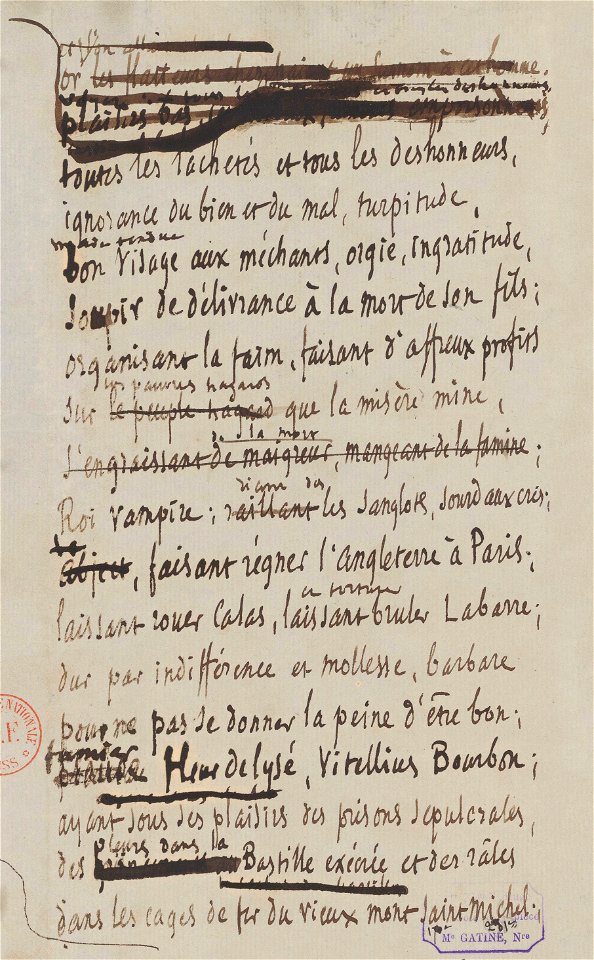 or les flatteurs cherchaient un surnom à cet homme.
plaisirs bas,
toutes les lâchetés et tous les deshonneurs,
ignorance du bien et du mal, turpitude,
bon visage aux méchants, orgie, ingratitude,
soupir de délivrance à la mort de son fils;
organisant la faim, faisant d'affreux profits
les pauvres hagards
sur le peuple hagard que la misère mine,
s'engraissant de maigreur, mangeant de la famine;
Roi vampire; raillant les sanglots, sourd aux cris;
abject, faisant régner l'Angleterre à Paris;
laissant rouer Calas, laissant bruler Labarre;
dur par indifférence et mollesse, barbare
pour ne pas se donner la peine d'être bon;
fumier fleurdelysé, Vitellius Bourbon;
ayant sous ses plaisirs des prisons sépulcrales,
pleurs dans la
des Bastille exécrée et des râles
dans les cages de fer du vieux mont Saint Michel.
Me GATINE, Nre